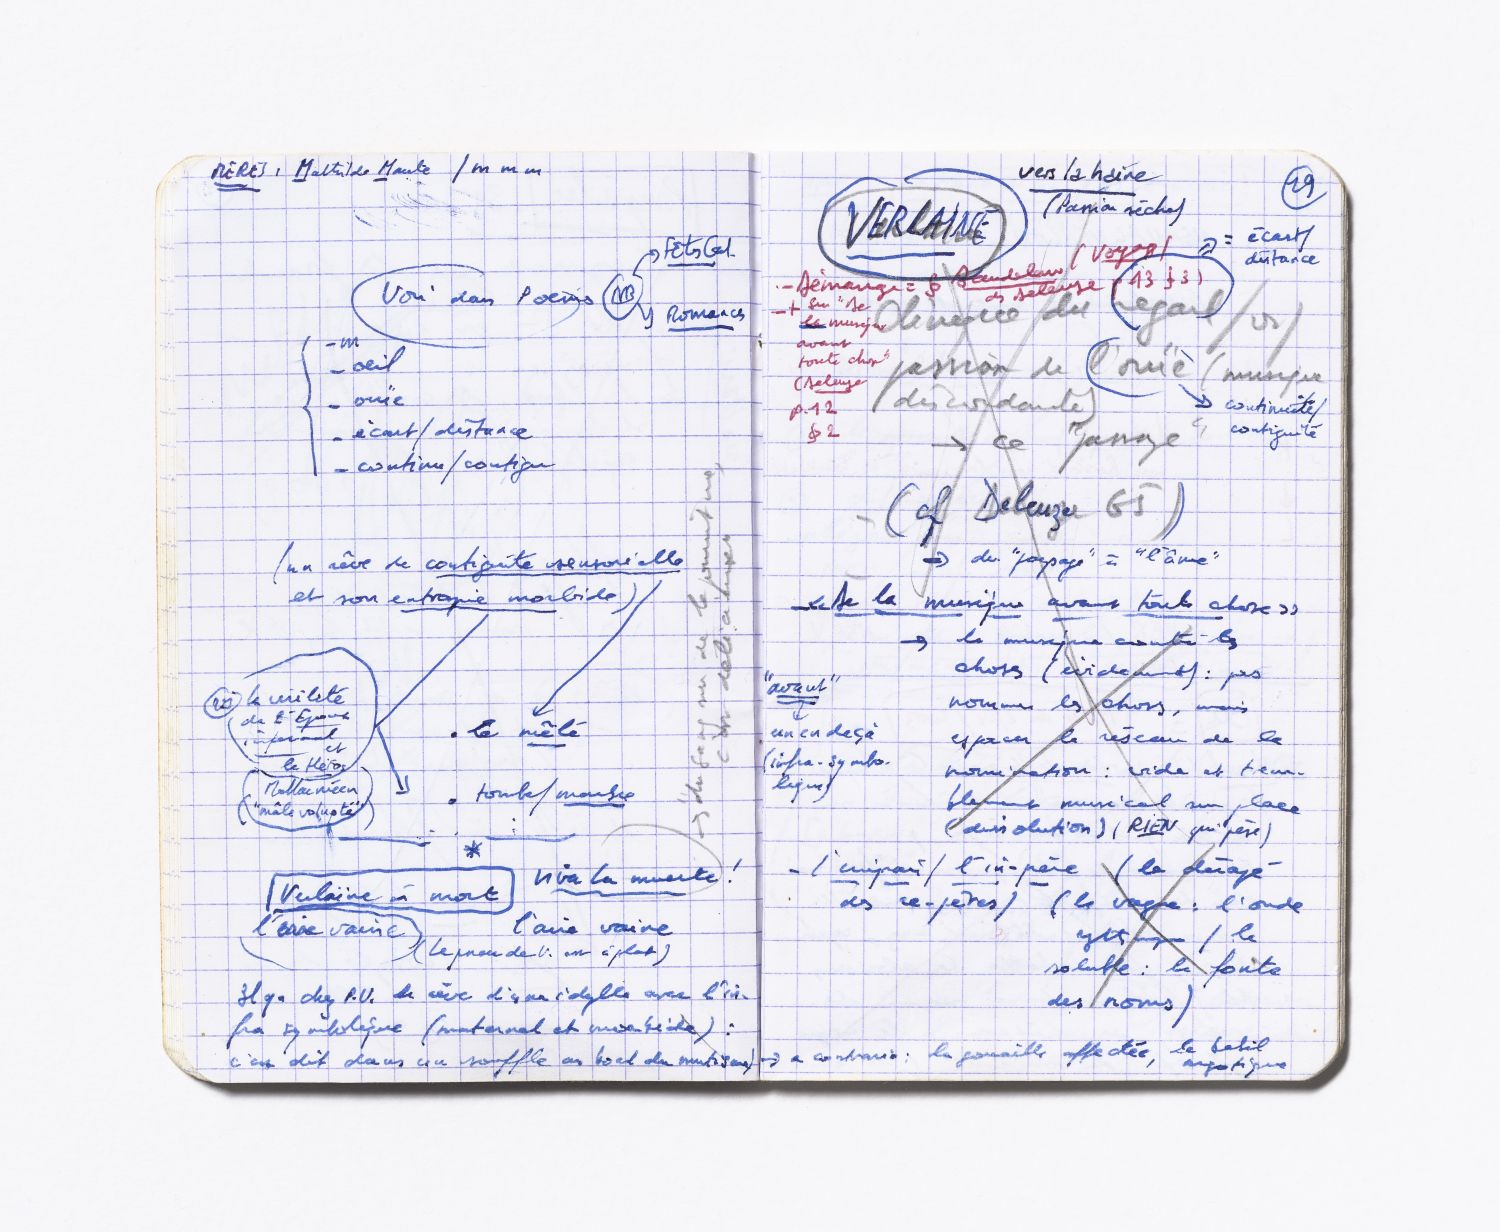 MÈRES : Mathilde Mauté / m m m
Voir dans Poèmes
NB
Fêtes Gal.
Romances
- m
- œil
- ouïe
- écart/distance
- continu/contigu
(un rêve de contiguïté sensorielle
et son entropie morbide)
la virilité
de l'Epoux
infernal et
le Héros
Mallarméen
"mâle volupté"
. le mêlé
. tombe/
*
Verlaine à mort
Viva la muerte !
l'aire vaine
l'aire vaine
Il y a chez P.V. le rêve d'une idylle avec l'in-
fra symbolique (maternel et morbide) :
c'est dit dans un souffle au bord du mutisme)
49
vers la haine
(Passion sèche)
VERLAINE
= écart/
distance
- Démarrage = § Baudelaire (Voyage)
ds Deleuze p. 13 § 3)
+ sur "De
la musique
avant
toute chose"
(Deleuze
p. 12
§ 2
du regard / vs /
passion de l'ouïe (musique
discordante)
→ continuité/
contiguïté
→ ce "passage"
(cf Deleuze G5)
→ du "paysage" = "l'âme"
- « De la musique avant toute chose »
→ la musique contre les
choses (évidemment) : pas
nommer les choses, mais
espacer le réseau de la
nomination : vide et trem-
blement musical sur place
(dissolution), RIEN qui pèse)
"avant"
↓
un en deçà
(infra-symbo-
lique)
- l'impair / l'in-père (le dérapé
des re-pères) (le vague : l'onde
/ le
soluble : la fonte
des noms)
→ a contrario : la gouaille affectée, le babil
argotique